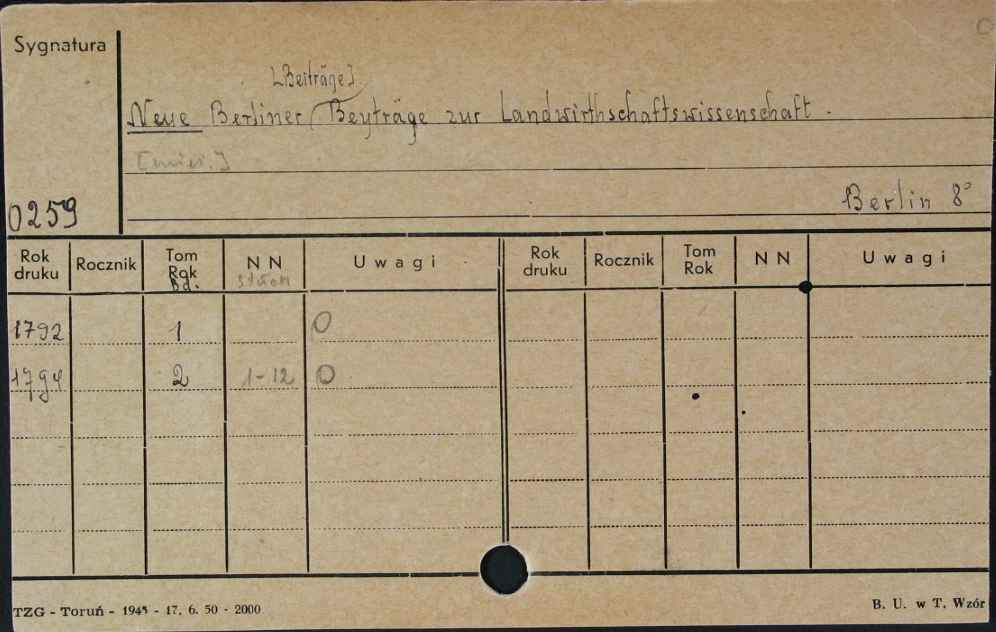 Sygnatura
[Beiträge]
Neue Berliner (Beyträge zur Landwirthschaftswissenschaft.
[mies.]
Berlin 8°
0259
Rok druku Rocznik Tom Rok Bd. NN Uwagi Rok druku Rocznik Tom Rok NN Uwagi
1792 1 0
1794 2 1-12 0
TZG - Toruń - 1945 - 17. 6. 50 - 2000 B. U. w T. Wzór